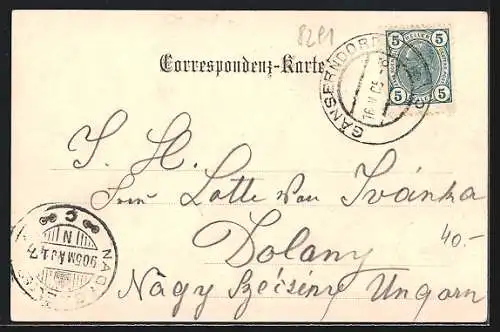 82P1
Correspondenz-Karte
5 5
5 5
GÄNSERNDORF
16 V 05
S. H.
Frau Lotte von Ivánka
Dolany
40.-
Nagy Szécsény Ungarn
NAGY
905 MÁJ 17
N
C